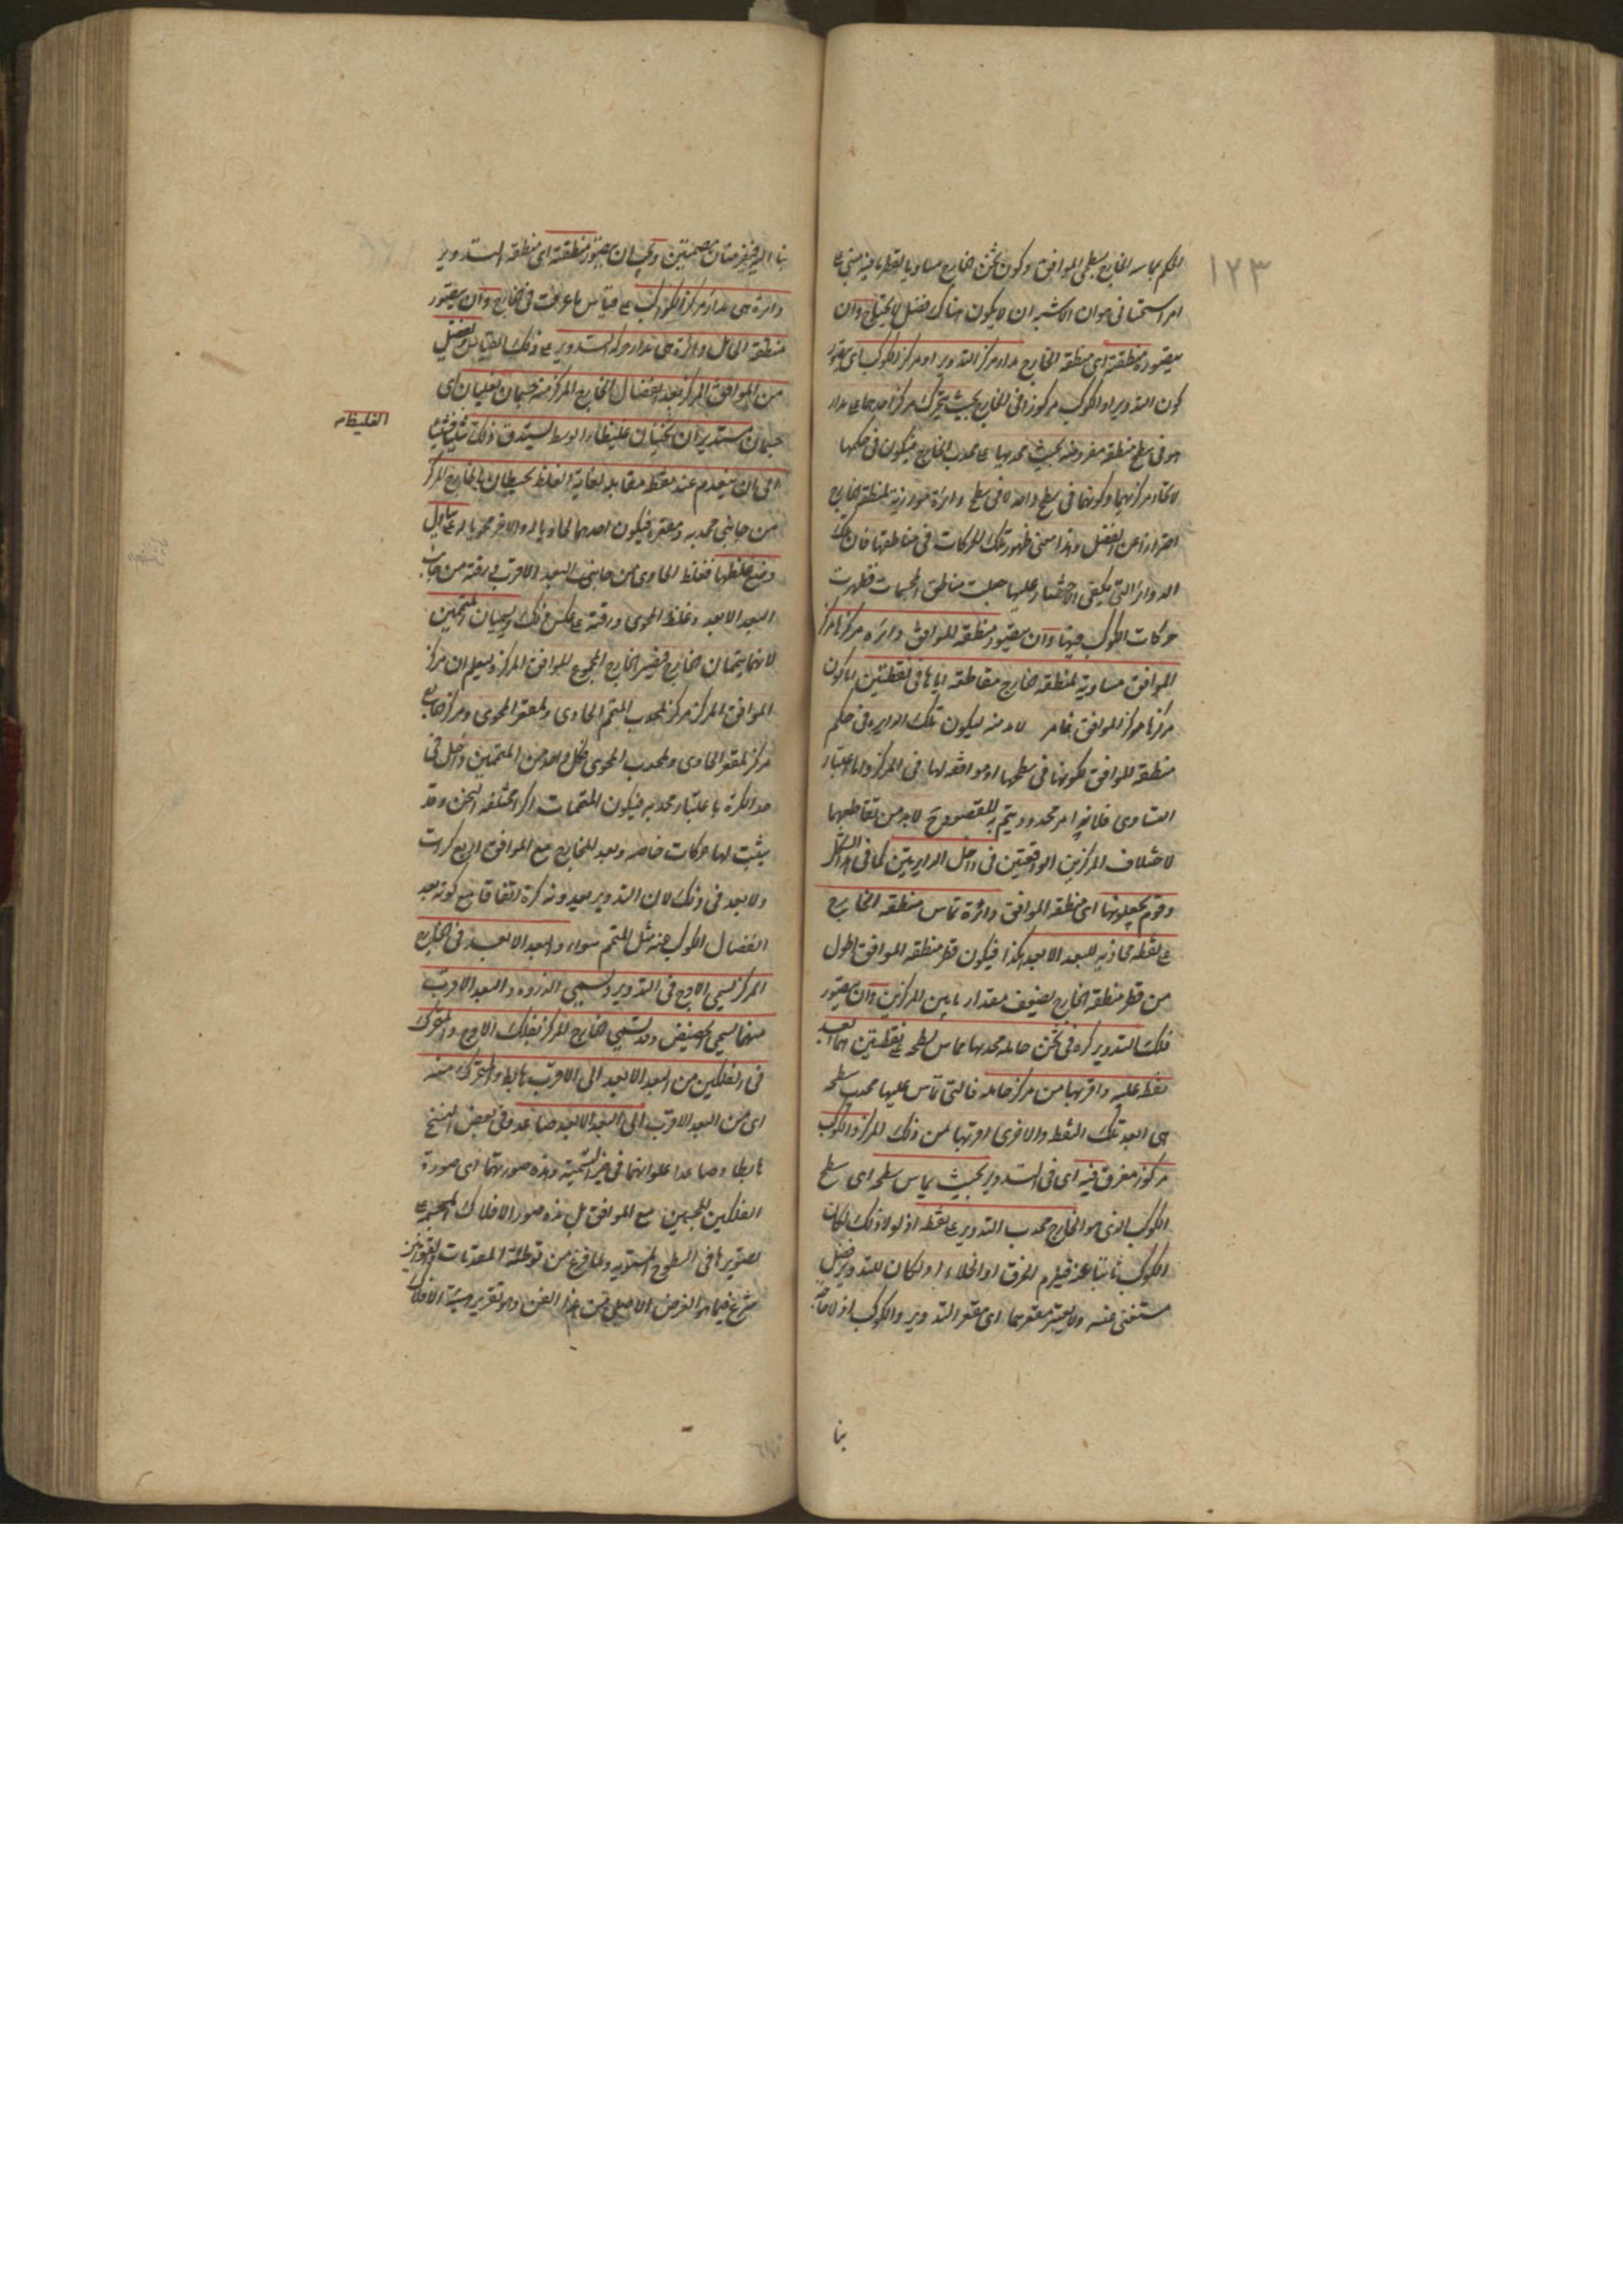 ١٢٣
الحكم بمماسة الخارج لسطحي الموافق وكون ثخن الخارج مساويا لقطر ما فيه مبني على
امر استحساني هو ان الاشبه ان لا يكون هناك فضل لا يحتاج وان
يتصور منطقته اى منطقة الخارج مدار مركز التدوير او مركز الكوكب اى يتصور
كون التدوير او الكوكب مركوزا فى الخارج بحيث يتحرك مركز احدهما على مدار
هو فى سطح منطقة مفروضة بحيث محدبها على محدب الخارج فيكون فى حكمها
لاتحاد مركزيهما وكونهما فى سطح واحد لا فى سطح دائرة موازية لمنطقة الخارج
احترازا عن الفضل وهذا معنى ظهور تلك الحركات فى مناطقها فان تلك
الدوائر التى يكتفى الاقتصار عليها جعلت مناطق المجسمات فظهرت
حركات الكوكب فيها وان يتصور منطقة الموافق دائرة مركزها مركز
الموافق مساوية لمنطقة الخارج مقاطعة اياها فى نقطتين اما كون
مركزها مركز الموافق فامر لا بد منه ليكون تلك الدايرة فى حكم
منطقة الموافق لكونها فى سطحها او موافقة لها فى المركز واما اعتبار
التساوى فلانه امر محدود ويتم به المقصود وح لا بد من تقاطعهما
لاختلاف المركزين الواقعين فى داخل الدايرتين كما فى هذا الشكل
وقوم يجعلونها اى منطقة الموافق دائرة تماس منطقة الخارج
على نقطة محاذية للبعد الابعد هكذا فيكون قطر منطقة الموافق اطول
من قطر منطقة الخارج بضعف مقدار ما بين المركزين وان يتصور
فلك التدوير كرة فى ثخن حامله محدبها مماس لسطحه على نقطتين هما ابعد
نقط عليه واقربها من مركز حامله فالتى تماس عليها محدب سطحه
هى ابعد تلك النقط والاخرى اقربها من ذلك المركز والكوكب
مركوز مغرق فيه اى فى التدوير بحيث يماس سطحه اى سطح
الكوكب الذى هو الخارج محدب التدوير على نقطة اذ لولا ذلك لكان
الكوكب ناتئا عنه فيلزم الخرق او الخلاء او لكان للتدوير فضل
مستغنى عنه ولا يعتبر مقعرهما اى مقعر التدوير والكوكب اذ لا حاجة
بنا
بنا اليه فيفرضان مصمتين ويجب ان يتصور منطقته اى منطقة التدوير
دائرة هى مدار مركز الكوكب على قياس ما عرفت فى الخارج وان يتصور
منطقة الحامل دائرة هى مدار مركز التدوير على ذلك القياس ويفضل
من الموافق المركز بعد انفصال الخارج المركز منه جسمان تعليميان اى
جسمان مستديران ثخينان غليظا الوسط يستدق ذلك شيئا فشيئا
الغليظ
الى ان ينعدم عند نقطة مقابلة لغاية الغلظ يحيطان بالخارج المركز
من جانبى محدبه ومقعره فيكون احدهما حاويا له والاخر محويا له يتبادل
وضع غلظهما فغلظ الحاوى من جانب البعد الاقرب ورقته من جانب
البعد الابعد وغلظ المحوى ورقته على عكس ذلك ويسميان المتممين
لانهما يتممان الخارج فيصير الخارج المجموع الموافق المركز ويعلم ان مركز
الموافق المركز مركز لمحدب المتمم الحاوى ولمقعر المحوى ومركز الخارج
مركز لمقعر الحاوى ولمحدب المحوى فكل واحد من المتممين داخل فى
حد الكرة باعتبار محدبه فيكون المتممات اكرا مختلفة الثخن وقد
يثبت لها حركات خاصة ويعد للخارج مع الموافق اربع كرات
ولا بعد فى ذلك لان التدوير يعدونه كرة اتفاقا مع كونه بعد
انفصال الكوكب عنه مثل المتمم سواء والبعد الابعد فى الخارج
المركز يسمى الاوج فى التدوير ويسمى الذروة والبعد الاقرب
منهما يسمى الحضيض وقد يسمى الخارج المركز بفلك الاوج والمتحرك
فى الفلكين من البعد الابعد الى الاقرب هابط والمتحرك منه
اى من البعد الاقرب الى البعد الابعد صاعد وفى بعض النسخ
هابطا وصاعدا على انهما فى حيز التسمية وهذه صورتهما اى صورة
الفلكين المجسمين مع الموافق بل هذه صور الافلاك المجسمة على
تصويرها فى السطوح المستوية ولما فرغ من توطئة المقدمات
شرع فيما هو الغرض الاصلى من هذا الفن وهو تقرير هيئة الافلاك